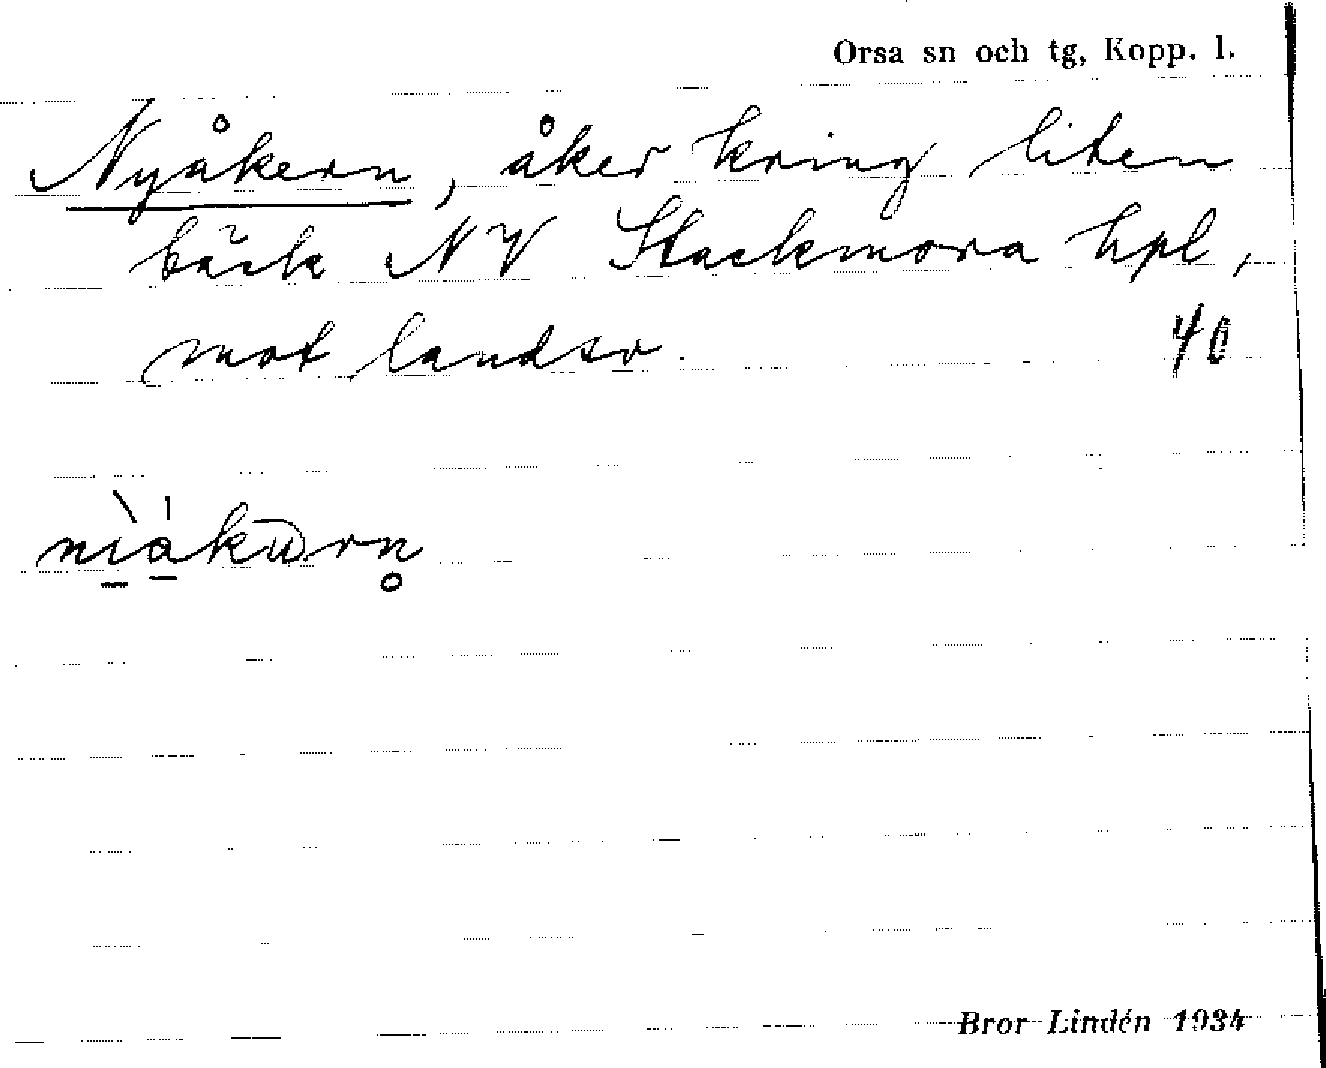 Orsa sn och tg, Kopp. l.
Nyåkern, åker kring liten
bäck NV Stackmora hpl,
mot landsv. 40
Bror Lindén 1934